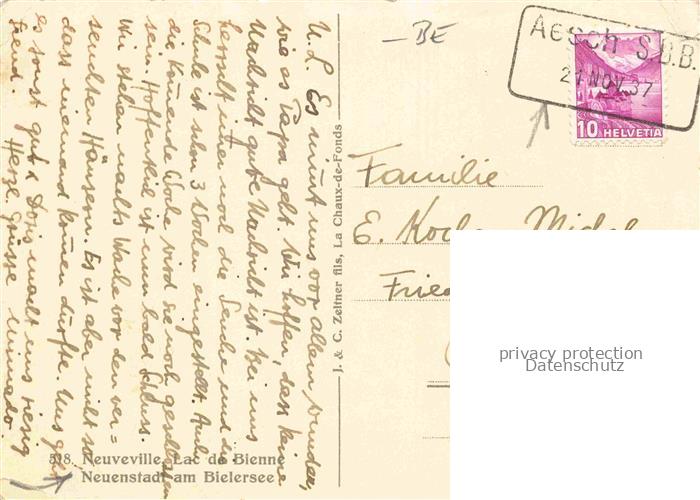 U. L. Es nimmt uns vor allem wunder,
wie es Papa geht. Wir hoffen, dass keine
Nachricht gute Nachricht ist. Bei uns
herrscht immer noch die Seuche und die
Schule ist schon 3 Wochen eingestellt. Auch
die kommende Woche wird sie noch geschlossen
sein. Hoffentlich ist nun bald Schluss.
Wir stehen nachts Wache vor den ver=
seuchten Häusern. Es ist aber nicht so
dass niemand kommen dürfte. Uns geht
es sonst gut & Doris macht uns riesig
Freud. Herzl. Grüsse
518. Neuveville, Lac de Bienne
Neuenstadt am Bielersee
J. & C. Zeltner fils, La Chaux-de-Fonds
— BE
Aesch S.B.B.
21 NOV. 37
10 HELVETIA
Familie
E. Koch
Frie
privacy protection
Datenschutz